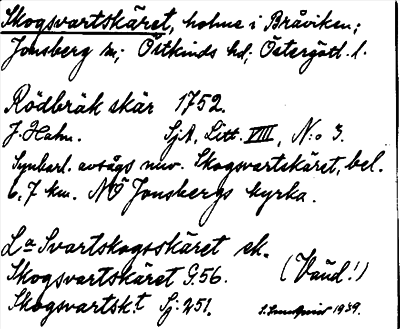 Skogsvartskäret, holme i Bråviken;
Jonsberg sn; Östkinds hd; Östergötl. l.
Rödbräk skär 1752.
J. Hahn. SjA, Litt. VIII, N:o 3.
Synbarl. avsågs nuv. Skogsvartskäret, bel.
6,7 km. NÖ Jonsbergs kyrka.
La Svartskogsskäret ek.
Skogsvartskäret G. 56. (Vaud!)
Skogsvartsk:t Sj. 251. 1939.